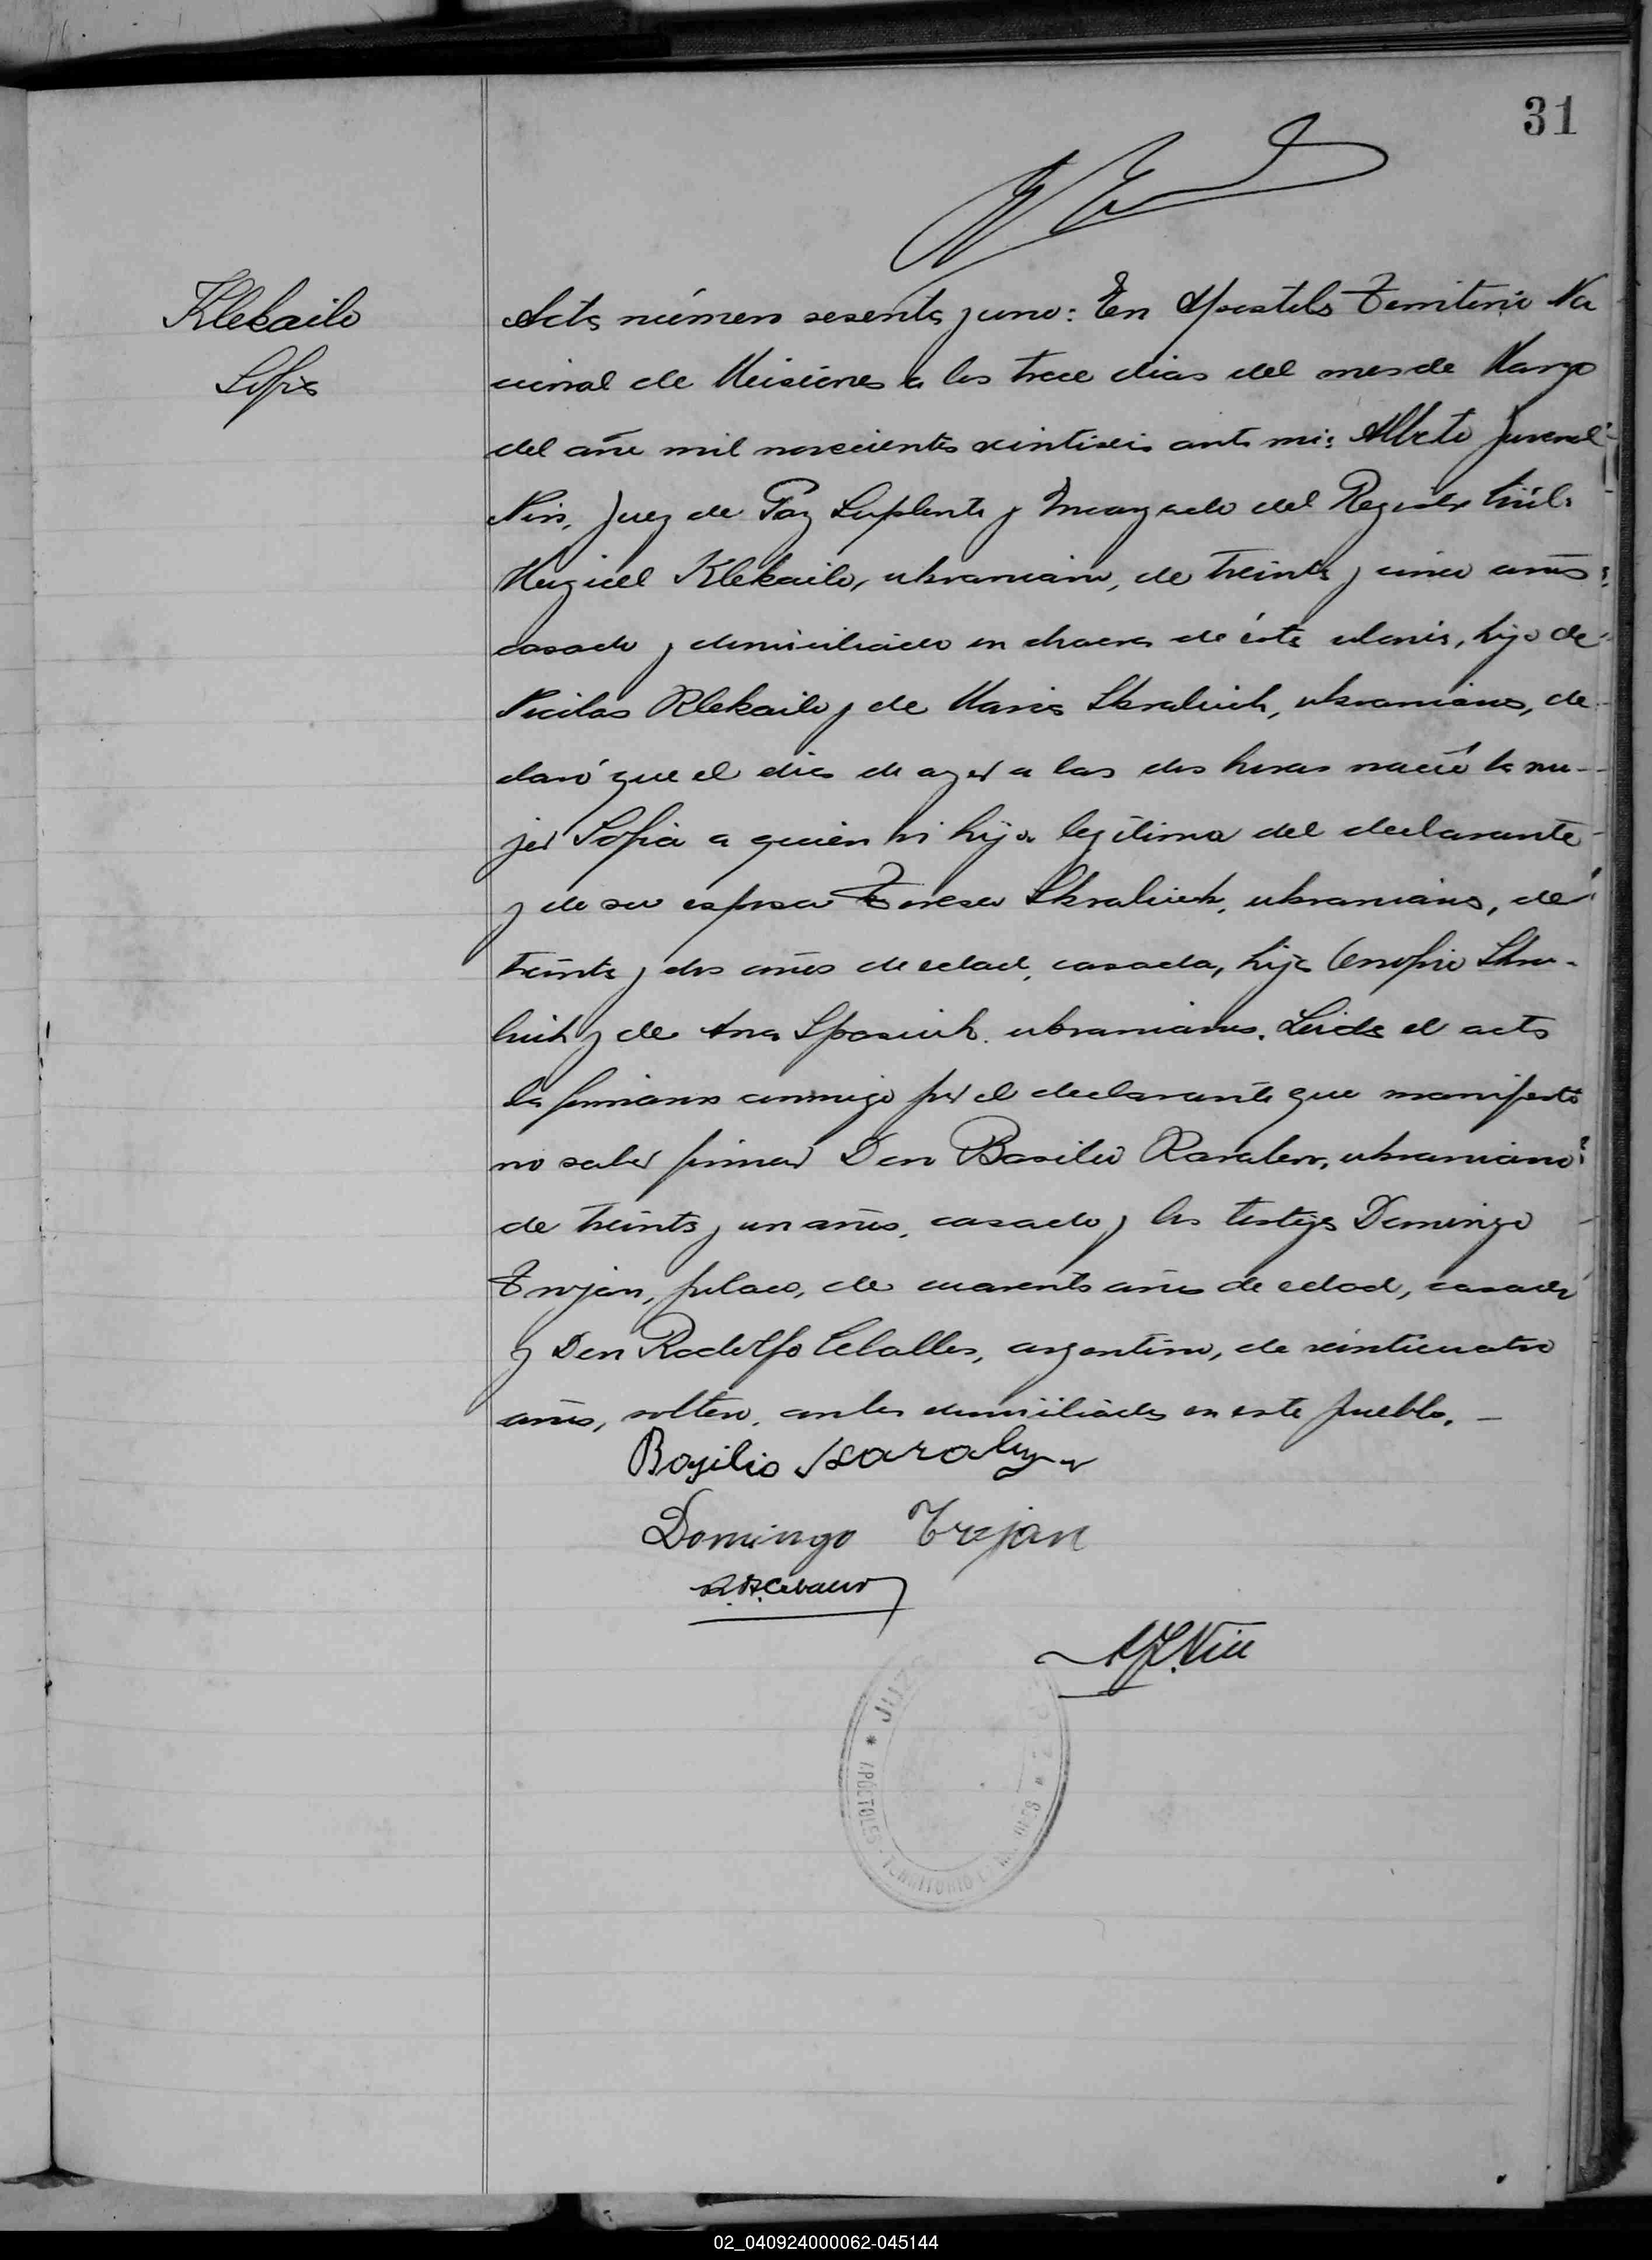 31
Klekailo
Sofia
Acta número sesenta y uno: En Apostoles Territorio Na
cional de Misiones a los trece dias del mes de Marzo
del año mil novecientos veintiseis ante mi: Alberto Juvenal
Niis, Juez de Paz Suplente y Encargado del Registro Civil:
Miguel Klekailo, ukraniano, de treinta y cinco años
casado y domiciliado en chacra de ésta colonia, hijo de
Nicolas Klekailo y de Maria Skraliuk, ukranianos, de
claró que el dia de ayer a las dos horas nació la mu-
jer Sofia a quien vi hija legítima del declarante
y de su esposa Teresa Skraliuk, ukraniana, de
treinta y dos años de edad, casada, hija Onofrio Skra-
liuk y de Ana Spasiuk. ukranianos. Leida el acta
la firmaron conmigo por el declarante que manifestó
no saber firmar Don Basilio Karalew, ukraniano
de treinta y un años, casado y los testigos Domingo
Trojan, polaco, de cuarenta años de edad, casado
y Don Rodolfo Ceballos, argentino, de veinticuatro
años, soltero, ambos domiciliados en este pueblo. -
Basilio
Domingo Trojan
A.J. Niis
JUZG
* APOSTOLES - TERRITORIO